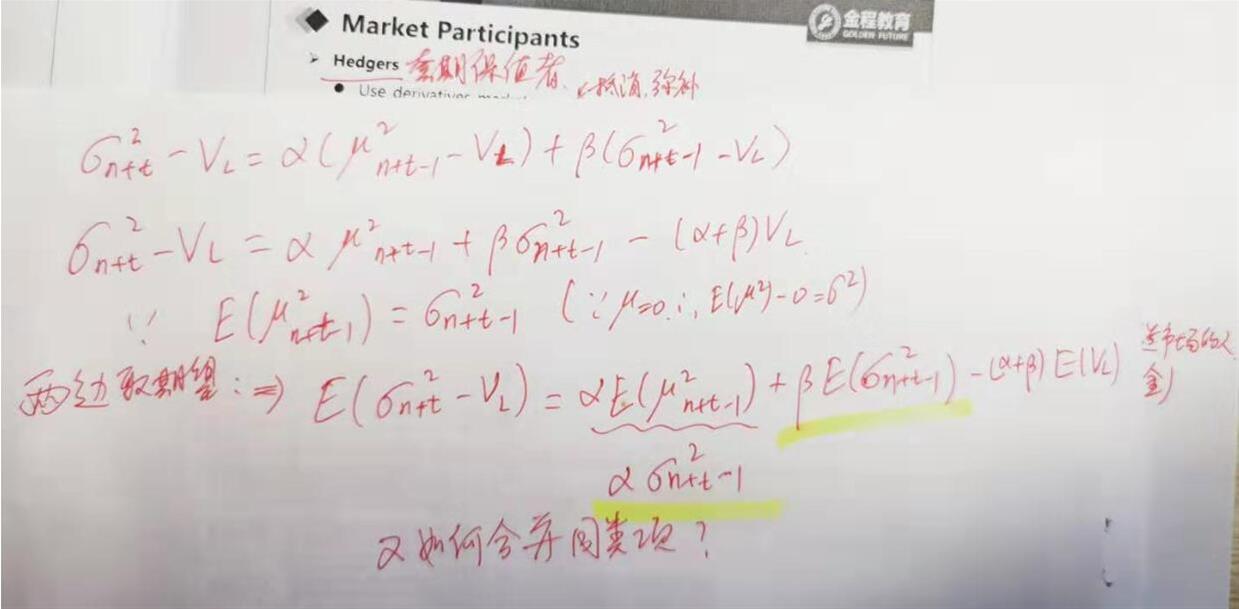 Market Participants
金程教育
GOLDEN FUTURE
➢ Hedgers 套期保值者 抵消,弥补
• Use derivatives
σ²ₙ₊ₜ - V_L = α(μ²ₙ₊ₜ₋₁ - V_L) + β(σ²ₙ₊ₜ₋₁ - V_L)
σ²ₙ₊ₜ - V_L = α μ²ₙ₊ₜ₋₁ + β σ²ₙ₊ₜ₋₁ - (α+β)V_L
∵ E(μ²ₙ₊ₜ₋₁) = σ²ₙ₊ₜ₋₁ (∵ μ=0 ∴ E(μ²)-0=σ²)
两边取期望: ⇒ E(σ²ₙ₊ₜ - V_L) = αE(μ²ₙ₊ₜ₋₁) + βE(σ²ₙ₊ₜ₋₁) - (α+β)E(V_L)
α σ²ₙ₊ₜ₋₁
又如何合并同类项?